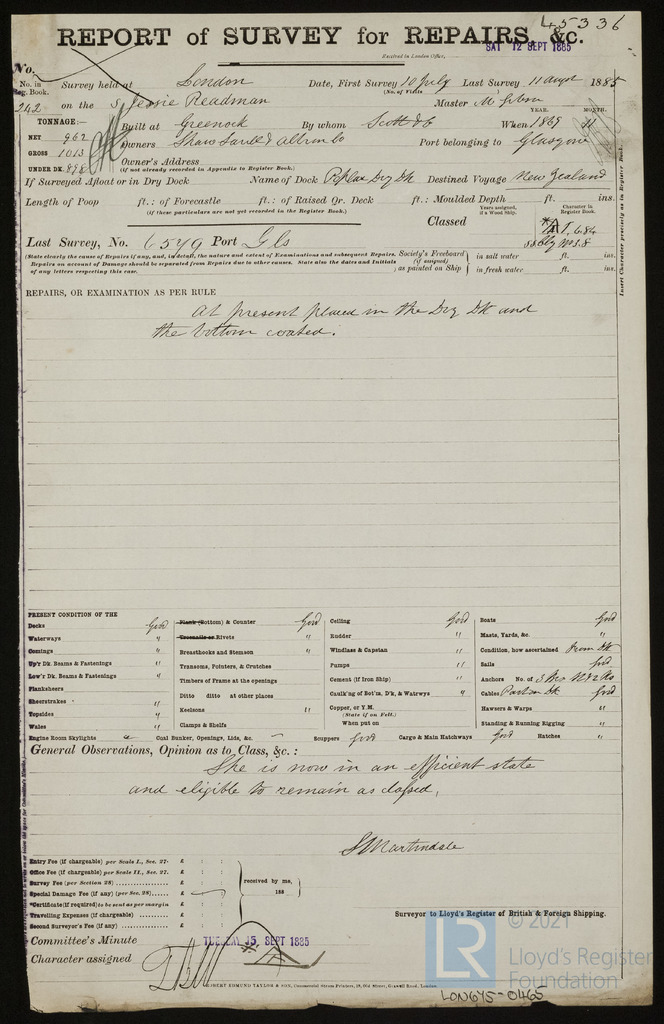 45336
REPORT of SURVEY for REPAIRS, &c.
Received in London Office, SAT 12 SEPT 1885
No.
No. in Reg. Book. Survey held at London Date, First Survey 10 July Last Survey 11 Augst 1885
(No. of Visits )
242 on the S Jessie Readman Master M Gibson
TONNAGE:— YEAR. MONTH.
NET 962 Built at Greenock By whom Scott & Co When 1869 11
GROSS 1013 Owners Shaw Savill & Albion Co Port belonging to Glasgow
UNDER DK. 898 Owner's Address
(if not already recorded in Appendix to Register Book.)
If Surveyed Afloat or in Dry Dock Name of Dock Poplar Dry Dk Destined Voyage New Zealand
Length of Poop ft.: of Forecastle ft.: of Raised Qr. Deck ft.: Moulded Depth ft. ins.
(if these particulars are not yet recorded in the Register Book.)
Years assigned, if a Wood Ship. Character in Register Book.
Classed
Last Survey, No. 6579 Port Gls
(State clearly the cause of Repairs if any, and, in detail, the nature and extent of Examinations and subsequent Repairs.
Repairs on account of Damage should be separated from Repairs due to other causes. State also the dates and Initials
of any letters respecting this case.
Society's Freeboard (if assigned) as painted on Ship in salt water ft. ins.
in fresh water ft. ins.
Insert Character precisely as in Register Book.
REPAIRS, OR EXAMINATION AS PER RULE
At present placed in the Dry Dk and
the bottom coated.
PRESENT CONDITION OF THE
Decks Good
Waterways "
Comings "
Up'r Dk. Beams & Fastenings "
Low'r Dk. Beams & Fastenings "
Planksheers
Sheerstrakes "
Topsides "
Wales "
Plank (Bottom) & Counter Good
Treenails or Rivets "
Breasthooks and Stemson "
Transoms, Pointers, & Crutches
Timbers of Frame at the openings
Ditto ditto at other places
Keelsons "
Clamps & Shelfs
Ceiling Good
Rudder "
Windlass & Capstan "
Pumps "
Cement (if Iron Ship) "
Caulk'ng of Bot'm, D'k, & Watrwys "
Copper, or Y.M.
(State if on Felt.)
When put on
Boats Good
Masts, Yards, &c. "
Condition, how ascertained From Dk
Sails Good
Anchors No. of
Cables Good
Hawsers & Warps "
Standing & Running Rigging "
Engine Room Skylights Coal Bunker, Openings, Lids, &c. Scuppers Good Cargo & Main Hatchways Good Hatches "
General Observations, Opinion as to Class, &c.:
She is now in an efficient state
and eligible to remain as classed.
J Martindale
Entry Fee (if chargeable) per Scale I., Sec. 27. £ : :
Office Fee (if chargeable) per Scale II., Sec. 27. £ : :
Survey Fee (per Section 28) £ : :
Special Damage Fee (if any) (per Sec. 28) £ : :
*Certificate (if required) to be sent as per margin
Travelling Expenses (if chargeable) £ : :
Second Surveyor's Fee (if any) £ : :
received by me,
188
Surveyor to Lloyd's Register of British & Foreign Shipping.
Committee's Minute TUESDAY 15 SEPT 1885
Character assigned
ROBERT EDMUND TAYLOR & SON, Commercial Steam Printers, 19, Old Street, Goswell Road, London.
LR
© 2021
Lloyd's Register
Foundation
LON675-0465